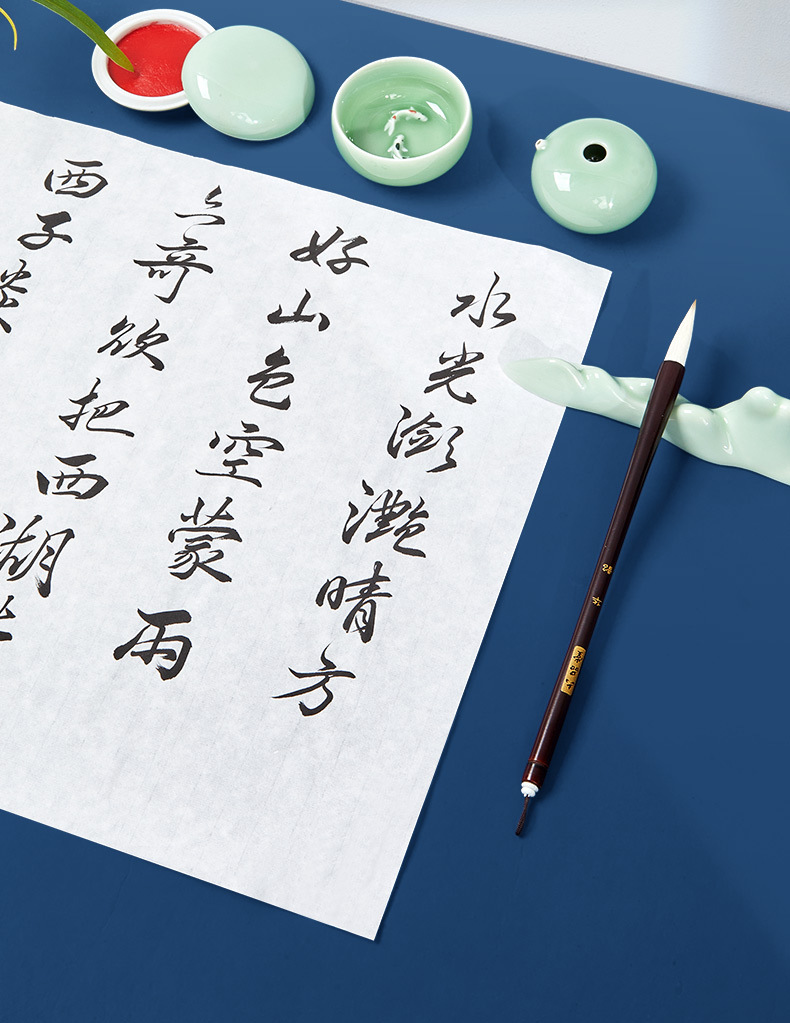 水光潋滟晴方
好山色空蒙雨
亦奇欲把西湖
西子